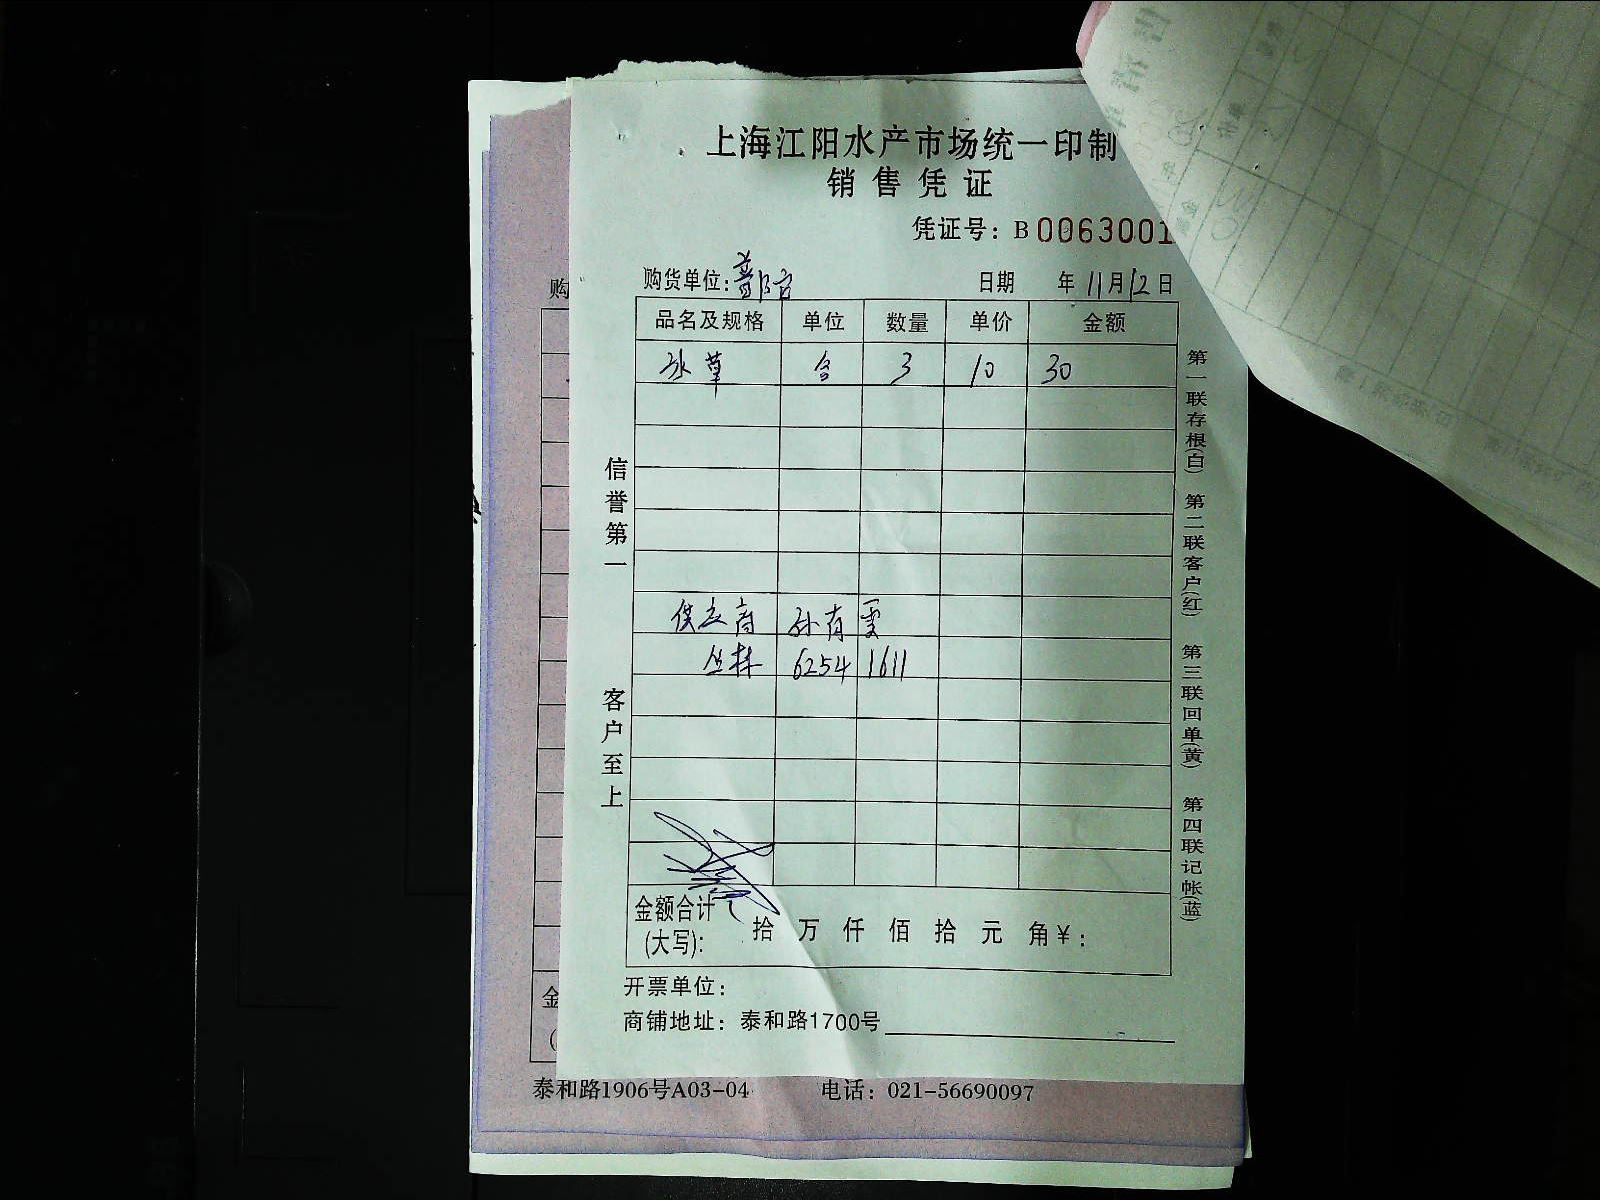 上海江阳水产市场统一印制
销售凭证
凭证号：B 0063001
购货单位： 日期 年 11月12日
品名及规格 单位 数量 单价 金额
冰草 合 3 10 30
供应商 孙有雯
丛林 6254 1611
信誉第一
客户至上
金额合计(大写): 拾 万 仟 佰 拾 元 角¥：
开票单位：
商铺地址：泰和路1700号
第一联存根(白) 第二联客户(红) 第三联回单(黄) 第四联记帐(蓝)
购
金
泰和路1906号A03-04 电话：021-56690097